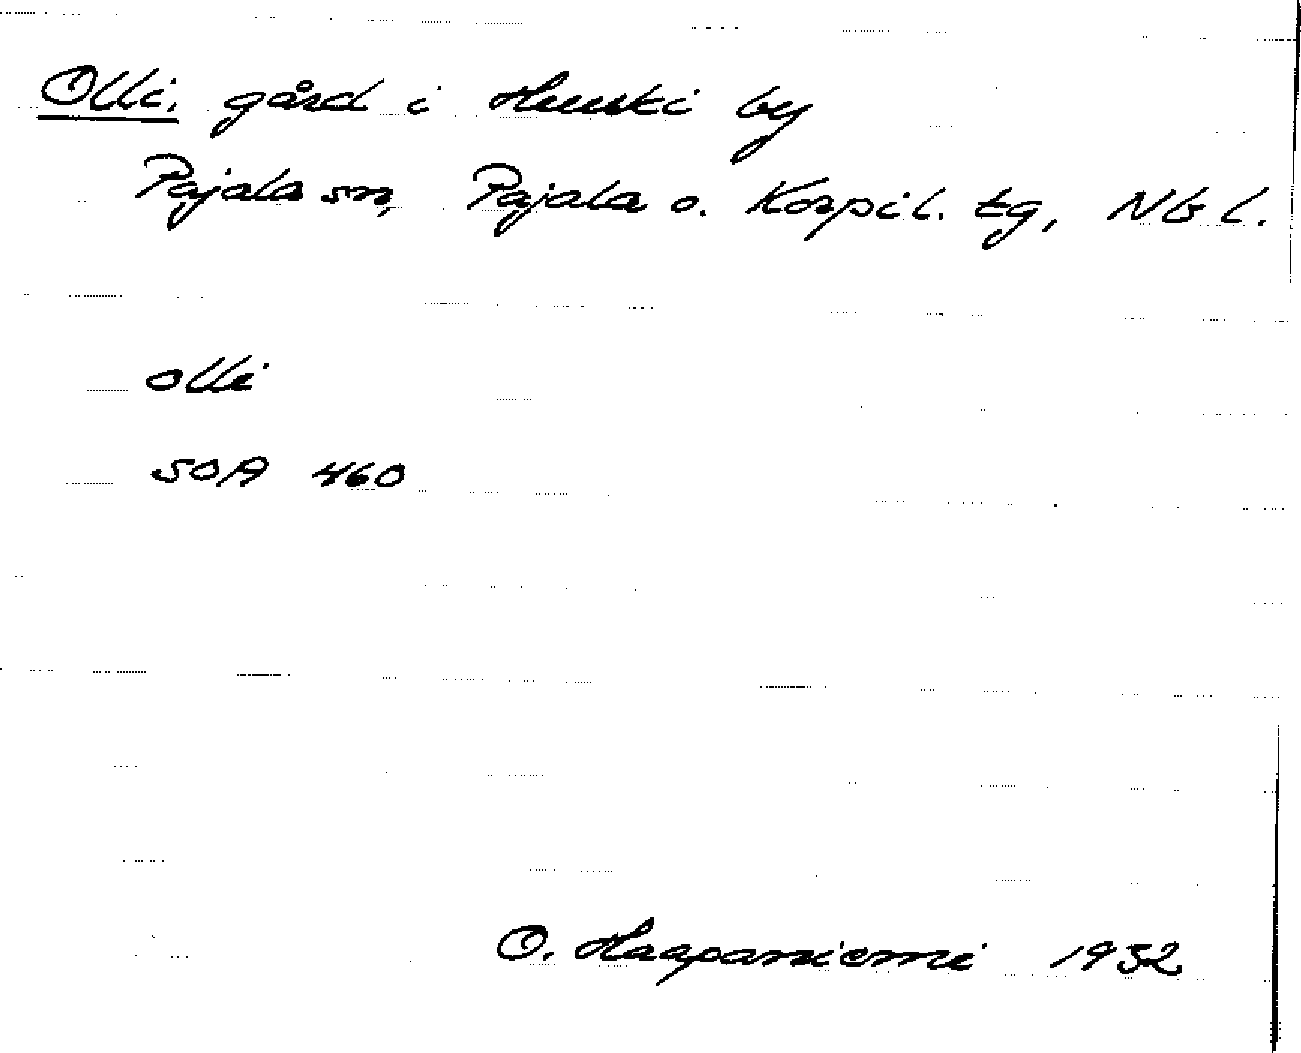 Olli, gård i Huuki by
Pajala sn, Pajala o. Korpil. tg, Nb l.
olli
SOA 460
O. Haapaniemi 1932